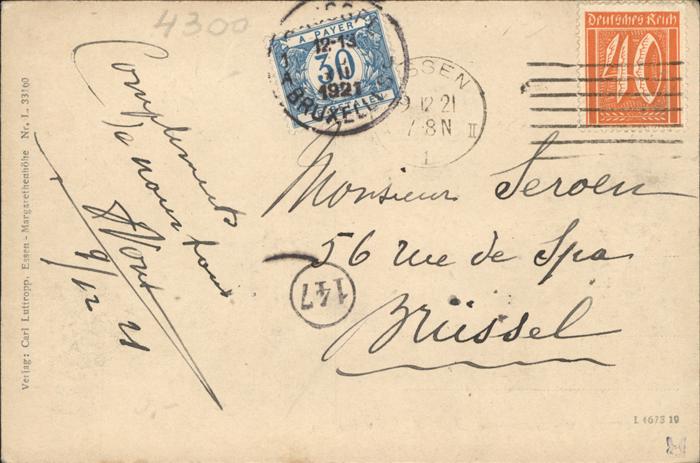 4300
A PAYER
30
12-13
1921
BRUXEL
ESSEN
9.12.21
7-8N
II
1
Deutsches Reich
40
Compliments
de nous tous
9/12 21
Monsieur Seroen
56 rue de Spa
Brüssel
147
Verlag: Carl Luttropp, Essen - Margarethenhöhe Nr. L. 33160
L 4673 19